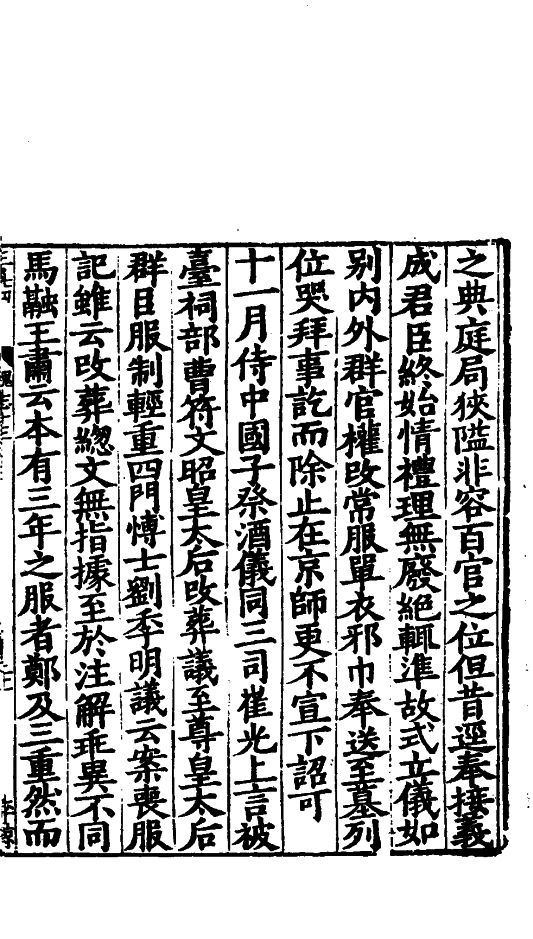 之典庭局狹隘非容百官之位但昔逕奉接義
成君臣終始情禮理無廢絶輒準故式立儀如
别内外群官權改常服單衣邪巾奉送至墓列
位哭拜事訖而除止在京師更不宣下詔可
十一月侍中國子祭酒儀同三司崔光上言被
臺祠部曹符文昭皇太后改葬議至尊皇太后
群臣服制輕重四門博士劉季明議云案喪服
記雖云改葬緦文無指據至於注解乖異不同
馬融王肅云本有三年之服者鄭及三重然而